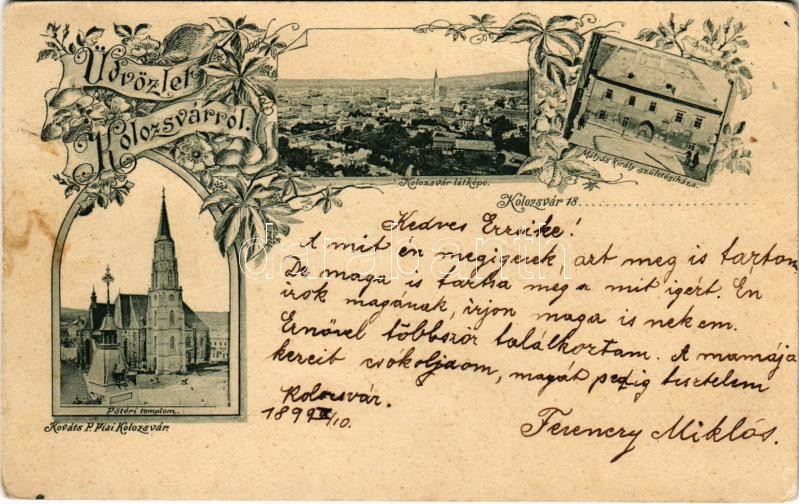 Üdvözlet
Kolozsvárról.
Kolozsvár látképe.
Mátyás király születésiháza.
Kolozsvár 18
Kedves Erzsike!
A mit én megigerek azt meg is tartom
De maga is tartsa meg a mit igért. Én
irok magának, irjon maga is nekem.
Ernővel többször találkoztam. A mamája
kezeit csokoljaom, magát pedig tisztelem
Kolozsvár.
Ferenczy Miklós.
Főtéri templom.
Kováts P. Fiai Kolozsvár.
darabanth